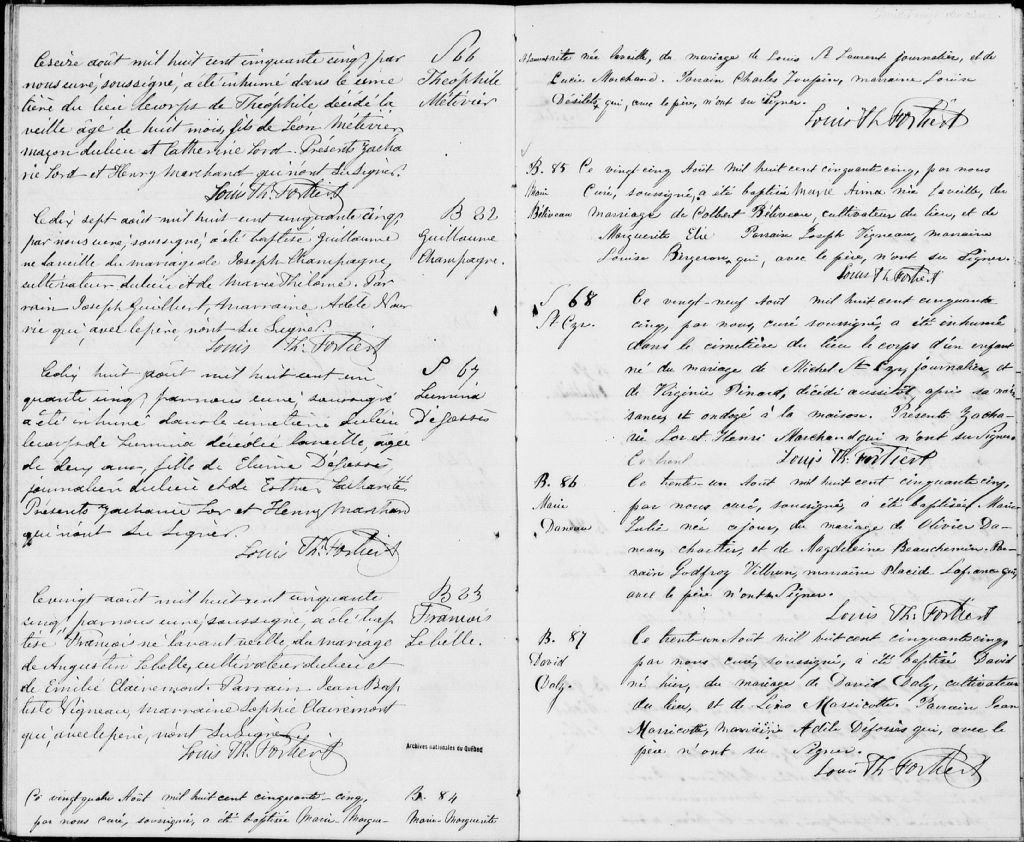 Ce seize août mil huit cent cinquante cinq, par
S 66
nous curé, soussigné, a été inhumé dans le cime
Théophile
tière du lieu le corps de Théophile décédé la
Métivier
veille âgé de huit mois, fils de Léon Métivier
maçon du lieu et Catherine Lord. Presents Zacha
rie Lord et Henry Marchand qui n'ont su signer.
Louis Th. Fortier
Ce dix sept août mil huit cent cinquante cinq,
B 82
par nous curé, soussigné, a été baptisé Guillaume
Guillaume
né la veille du mariage de Joseph Champagne,
Champagne.
cultivateur du lieu et de Marie
Par
rain Joseph Guilbert, marraine Adèle
qui, avec le père, n'ont su signer.
Louis Th. Fortier
Ce dix huit août mil huit cent cin
S 67
quante cinq par nous curé, soussigné
Lumina
a été inhumé dans le cimetière du lieu
le corps de Lumina décédée la veille, agée
de deux ans, fille de
journalier du lieu et de Esther
Présents Zacharie Lor et Henry Marchand
qui n'ont su signer.
Louis Th. Fortier
Ce vingt août mil huit cent cinquante
B 83
cinq par nous curé, soussigné, a été bap
François
tisé François né l'avant veille, du mariage
Lebelle.
de Augustin Lebelle, cultivateur du lieu et
de Emilie Clairemont. Parrain Jean Bap
tiste Vigneau, marraine Sophie Clairemont
qui, avec le père, n'ont su signer.
Louis Th. Fortier
Archives nationales du Québec
Ce vingt quatre Août mil huit cent cinquante-cinq,
B. 84
par nous curé, soussigné, a été baptisée Marie-Margue-
Marie-Marguerite
rite née la veille, du mariage de Louis St Laurent journalier, et de
Lucie Marchand. Parrain Charles Toupin, marraine Louise
Désilets, qui, avec le père, n'ont su signer.
Louis Th Fortier
B. 85 Ce vingt cinq Août mil huit cent cinquante cinq, par nous
Marie
Curé, soussigné, a été baptisée Marie Anna née la veille, du
Béliveau
mariage de Colbert Béliveau, cultivateur du lieu, et de
Marguerite Elie Parrain Joseph Vigneau, marraine
Louise Bergeron, qui, avec le père, n'ont su signer.
Louis Th Fortier
S 68
Ce vingt-neuf Août mil huit cent cinquante
St Cyr.
cinq, par nous, curé soussigné, a été inhumé
dans le cimetière du lieu le corps d'un enfant
né du mariage de Michel St Cyr, journalier, et
de Virginie Pinard, décédé aussitôt, après sa nais
sance, et ondoyé à la maison. Présents Zacha
rie Lor et Henri Marchand qui n'ont su signer
Louis Th. Fortier
B. 86
Ce trente-un Août mil huit cent cinquante cinq,
Marie
par nous curé, soussigné, a été baptisée, Marie
Daneau
Julie née ce jour, du mariage de Olivier Da-
neau, charretier, et de Magdeleine Beauchemin. Par-
rain Godfroy Vilbrun, marraine Placide Lafrance qui,
avec le père n'ont su signer.
Louis Th. Fortier
B. 87
Ce trente-un Août mil huit cent cinquante cinq,
David
par nous curé, soussigné, a été baptisé David
Daly.
né hier, du mariage de David Daly, cultivateur
du lieu, et de Lina Massicotte. Parrain Jean
Massicotte, marraine Adèle
qui, avec le
père n'ont su signer.
Louis Th Fortier